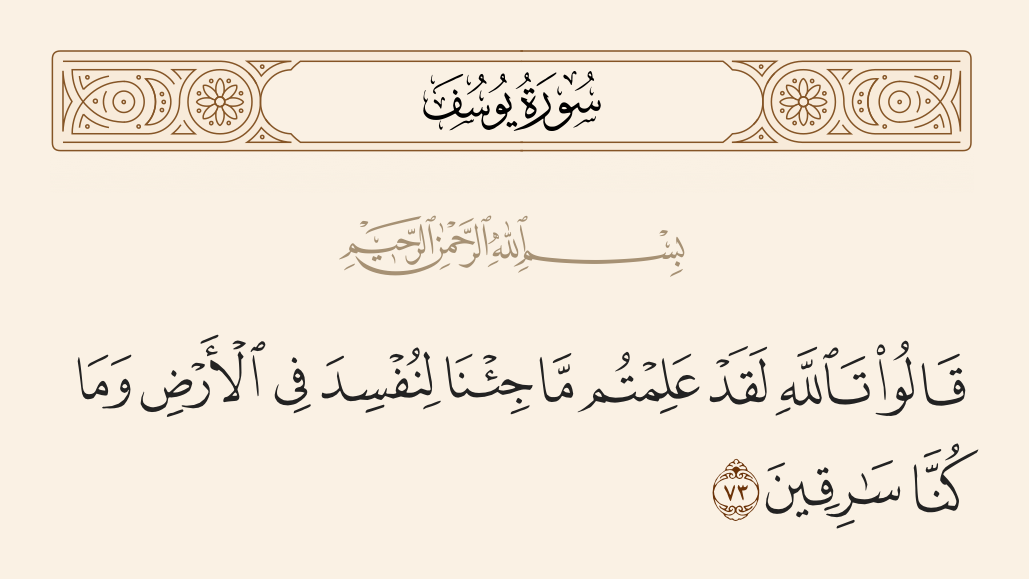 سُورَةُ يُوسُفَ
بِسْمِ ٱللَّهِ ٱلرَّحْمَٰنِ ٱلرَّحِيمِ
قَالُوا۟ تَٱللَّهِ لَقَدْ عَلِمْتُم مَّا جِئْنَا لِنُفْسِدَ فِى ٱلْأَرْضِ وَمَا
كُنَّا سَٰرِقِينَ ٧٣